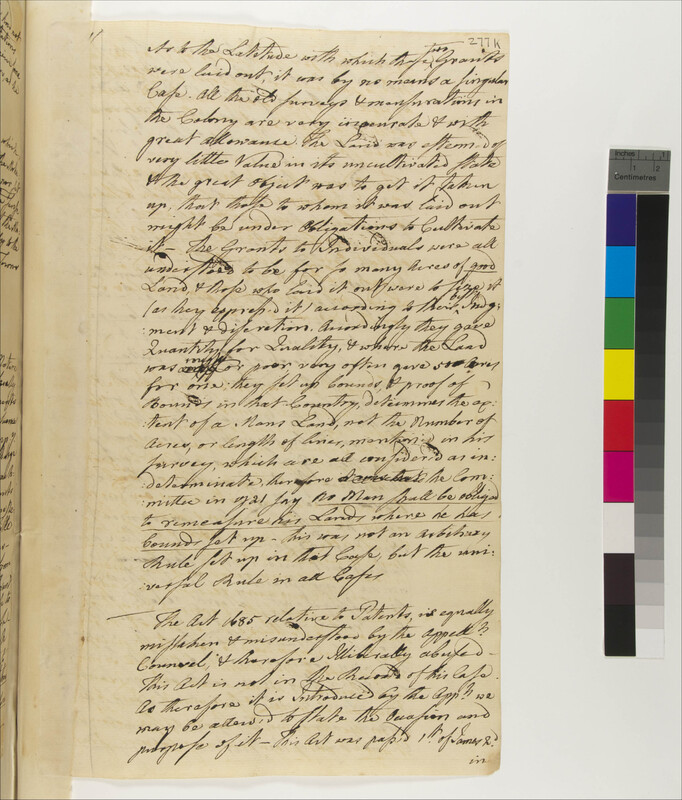 277 K
As to the Latitude with which those two Grants
were laid out, it was by no means a singular
Case. All the old surveys & mensurations in
the Colony are very inaccurate & with
great allowance. The Land was esteem'd of
very little Value in its uncultivated State
& the great Object was to get it taken
up, that those to whom it was laid out
might be under Obligations to Cultivate
it — The Grants to Individuals were all
understood to be for so many Acres of good
Land, & those who laid it out were to size it
(as they express'd it) according to their Judg:
:ment & discretion. Accordingly they gave
Quantity for Quality, & where the Land
was rough or poor very often gave 500 Acres
for one: they set up bounds, & proof of
Bounds in that Country, determines the ex:
:tent of a Mans Land, not the Number of
Acres, or length of lines, mention'd in his
survey, which are all consider'd as in:
:determinate, therefore the Com:
:mittee in 1721 say No Man shall be obliged
to remeasure his Lands where he has
bounds set up — this was not an Arbitrary
Rule set up in that Case, but the uni:
:versal Rule in all Cases
The Act 1685 relative to Patents, is equally
mistaken & misunderstood by the Appell.ts
Councel, & therefore Illiberally abused —
This Act is not in the Record of this Case.
As therefore it is introduced by the App.ts we
may be allow'd to State the Occasion and
purpose of it — This Act was pass'd 1st of James 2d
in
Inches
1
2
Centimetres